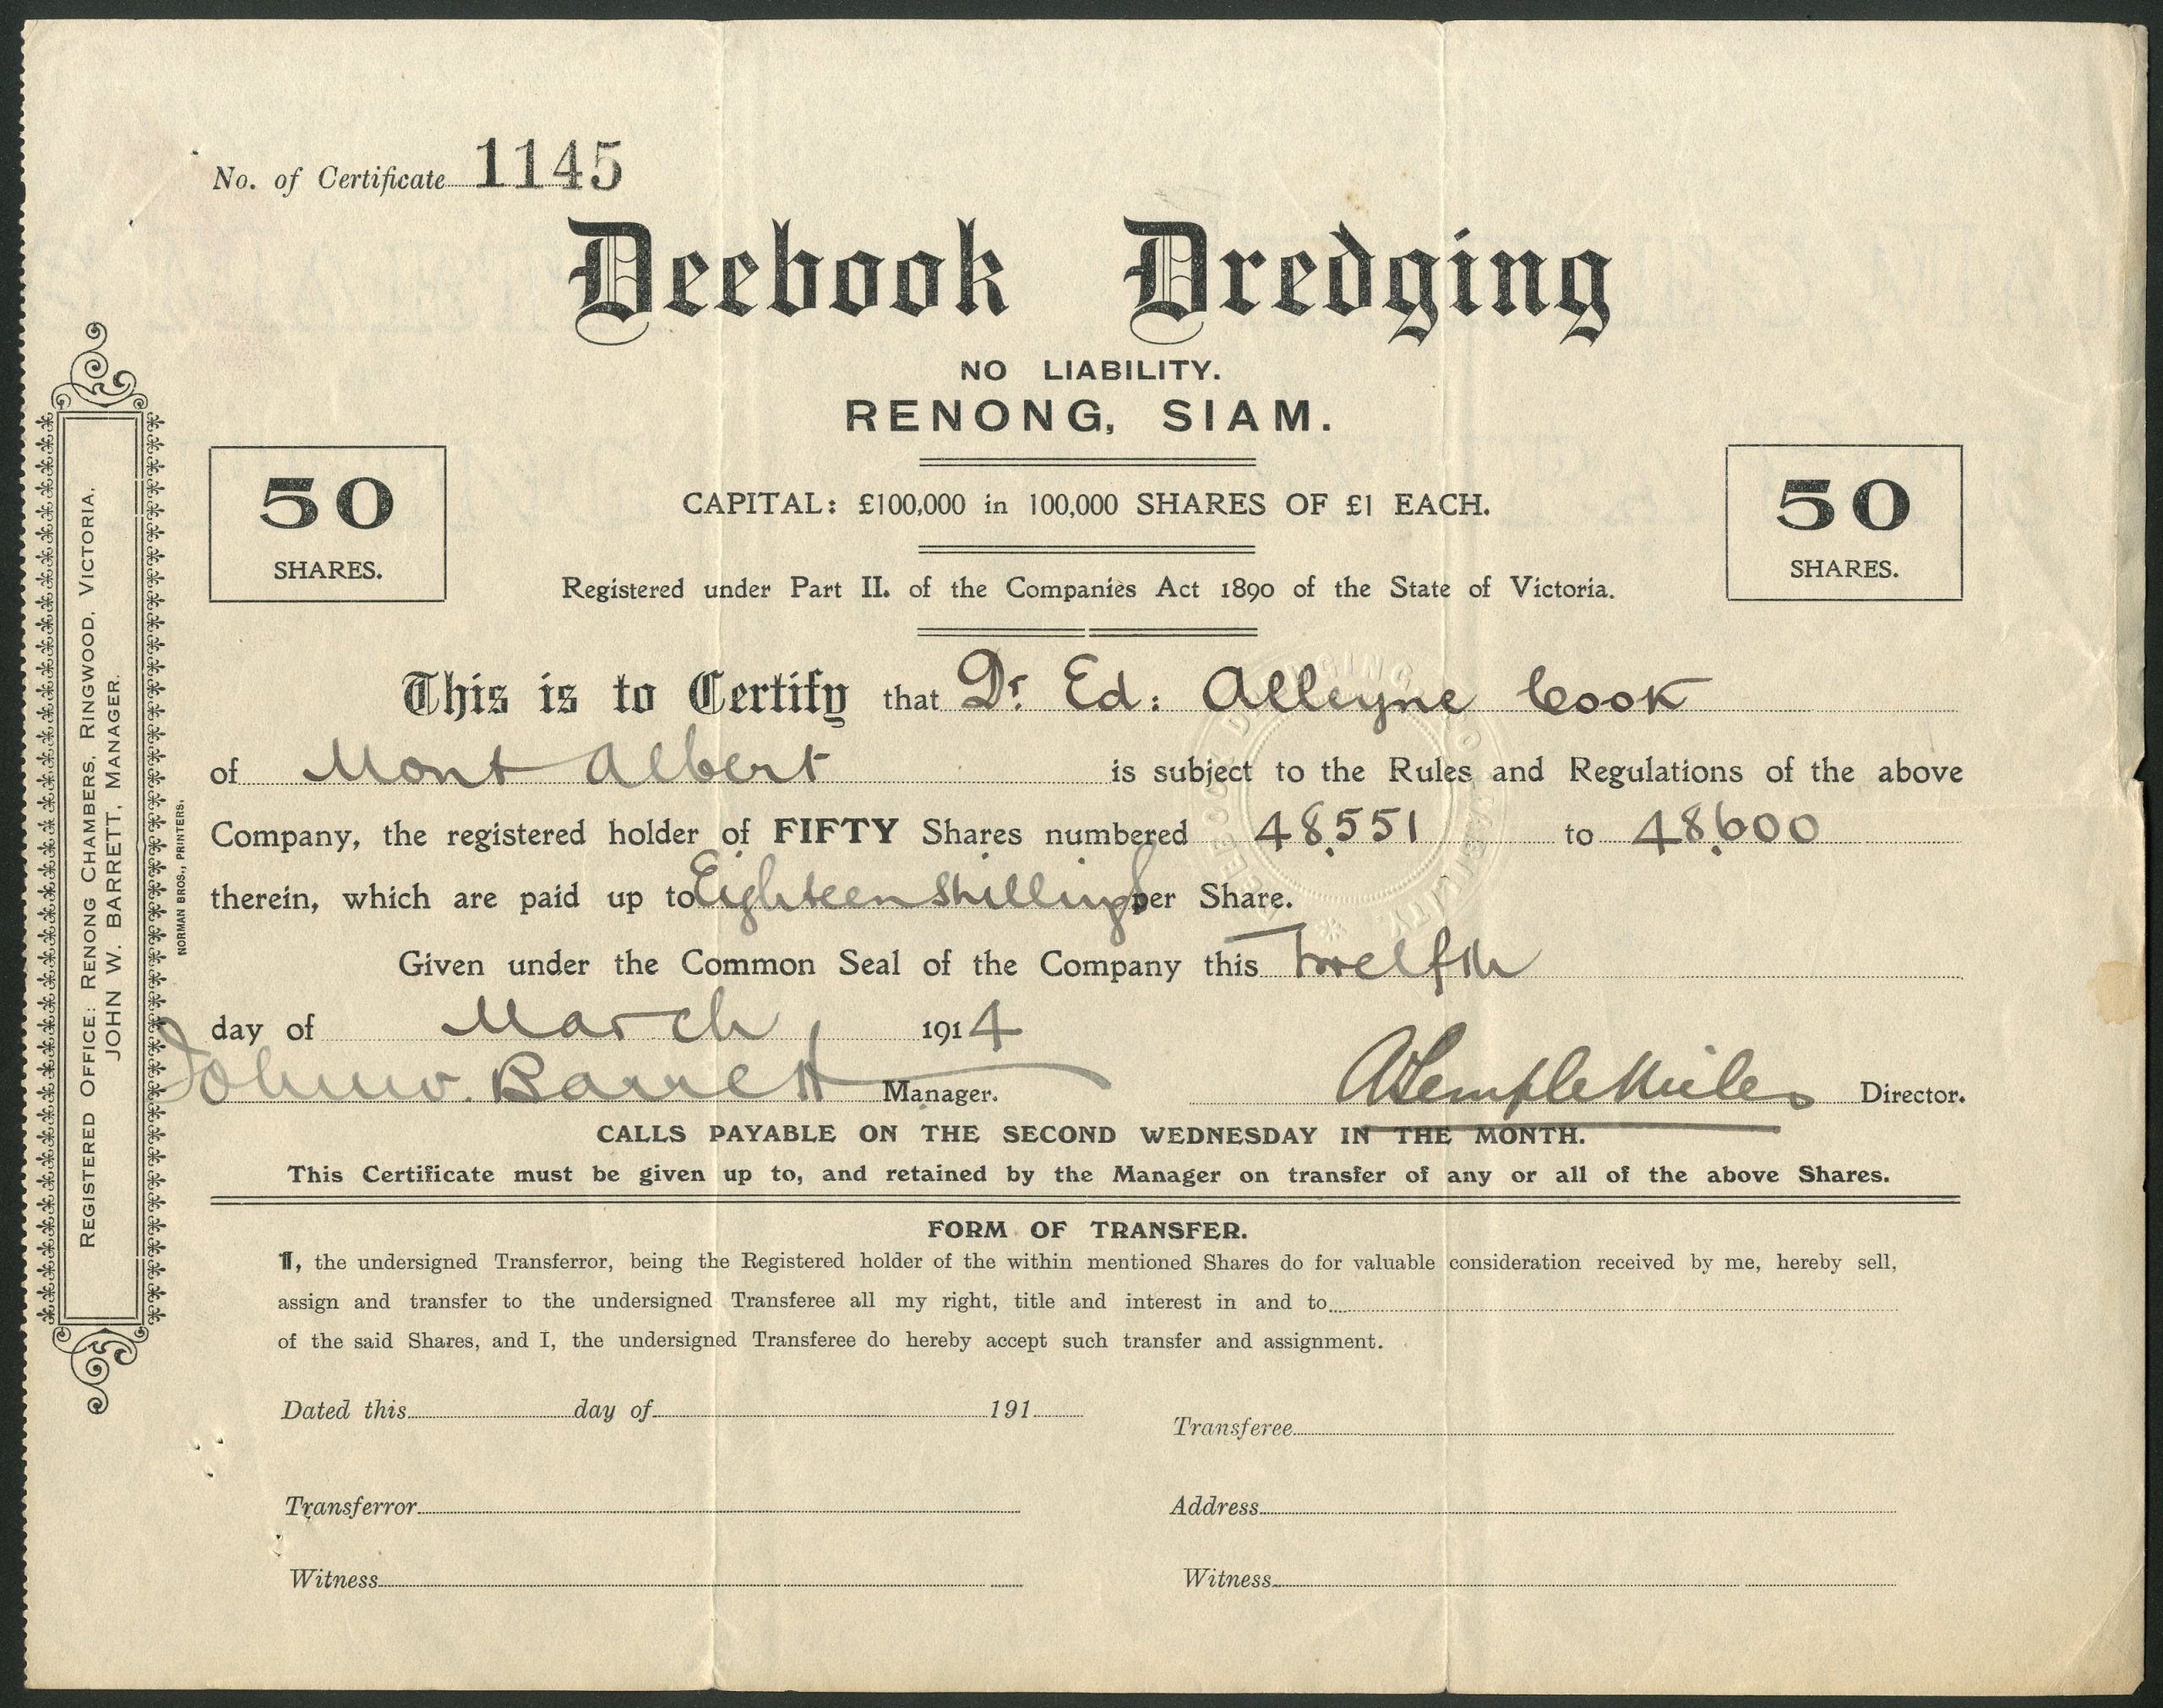 No. of Certificate 1145
Deebook Dredging
NO LIABILITY.
RENONG, SIAM.
50
SHARES.
CAPITAL: £100,000 in 100,000 SHARES OF £1 EACH.
50
SHARES.
Registered under Part II. of the Companies Act 1890 of the State of Victoria.
This is to Certify that Dr. Ed: Alleyne Cook
of Mont Albert is subject to the Rules and Regulations of the above
Company, the registered holder of FIFTY Shares numbered 48,551 to 48,600
therein, which are paid up to Eighteen Shillings per Share.
Given under the Common Seal of the Company this Twelfth
day of March 1914
John W. Barrett Manager.
A Temple Miles Director.
CALLS PAYABLE ON THE SECOND WEDNESDAY IN THE MONTH.
This Certificate must be given up to, and retained by the Manager on transfer of any or all of the above Shares.
FORM OF TRANSFER.
I, the undersigned Transferror, being the Registered holder of the within mentioned Shares do for valuable consideration received by me, hereby sell,
assign and transfer to the undersigned Transferee all my right, title and interest in and to
of the said Shares, and I, the undersigned Transferee do hereby accept such transfer and assignment.
Dated this day of 191
Transferee
Transferror
Address
Witness
Witness
REGISTERED OFFICE: RENONG CHAMBERS, RINGWOOD, VICTORIA.
JOHN W. BARRETT, MANAGER.
NORMAN BROS., PRINTERS.
DEEBOOK DREDGING NO LIABILITY